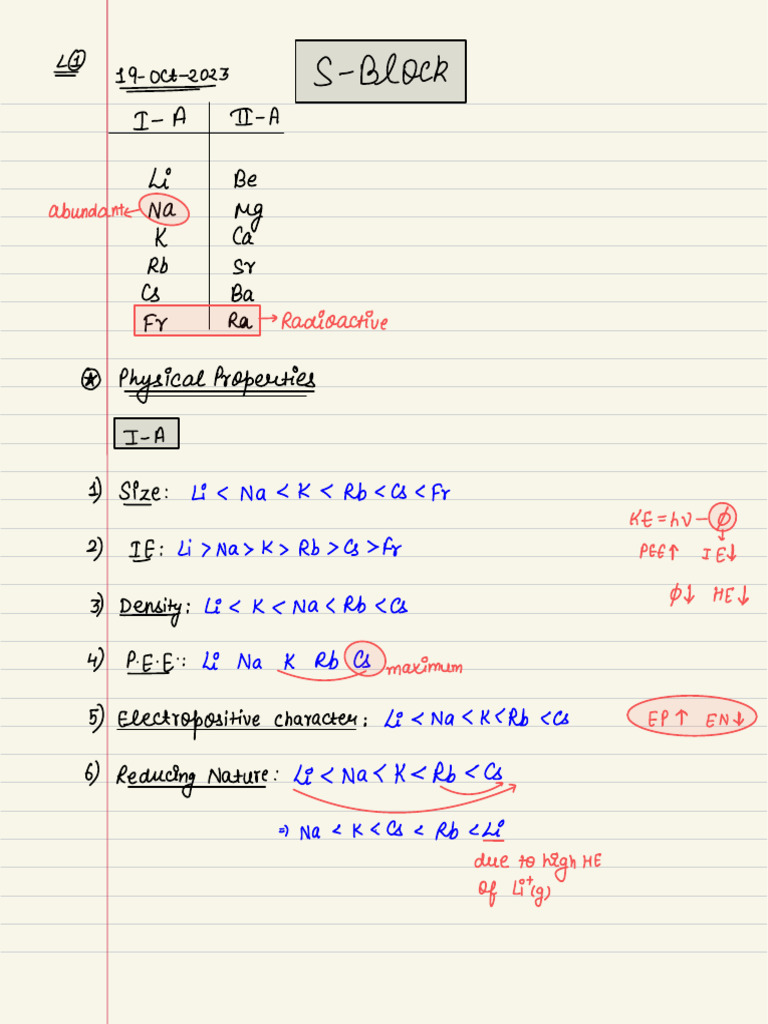 L①
19-Oct-2023
S-Block
I-A II-A
Li Be
abundant ← Na Mg
K Ca
Rb Sr
Cs Ba
Fr Ra → Radioactive
⍟ Physical Properties
I-A
1) Size: Li < Na < K < Rb < Cs < Fr
KE = hν - ϕ
2) IE: Li > Na > K > Rb > Cs > Fr
PEE↑ IE↓
ϕ↓ HE↓
3) Density: Li < K < Na < Rb < Cs
4) P.E.E:: Li Na K Rb Cs maximum
5) Electropositive character: Li < Na < K < Rb < Cs
EP↑ EN↓
6) Reducing Nature: Li < Na < K < Rb < Cs
⇒ Na < K < Cs < Rb < Li
due to high HE
of Li⁺(g)